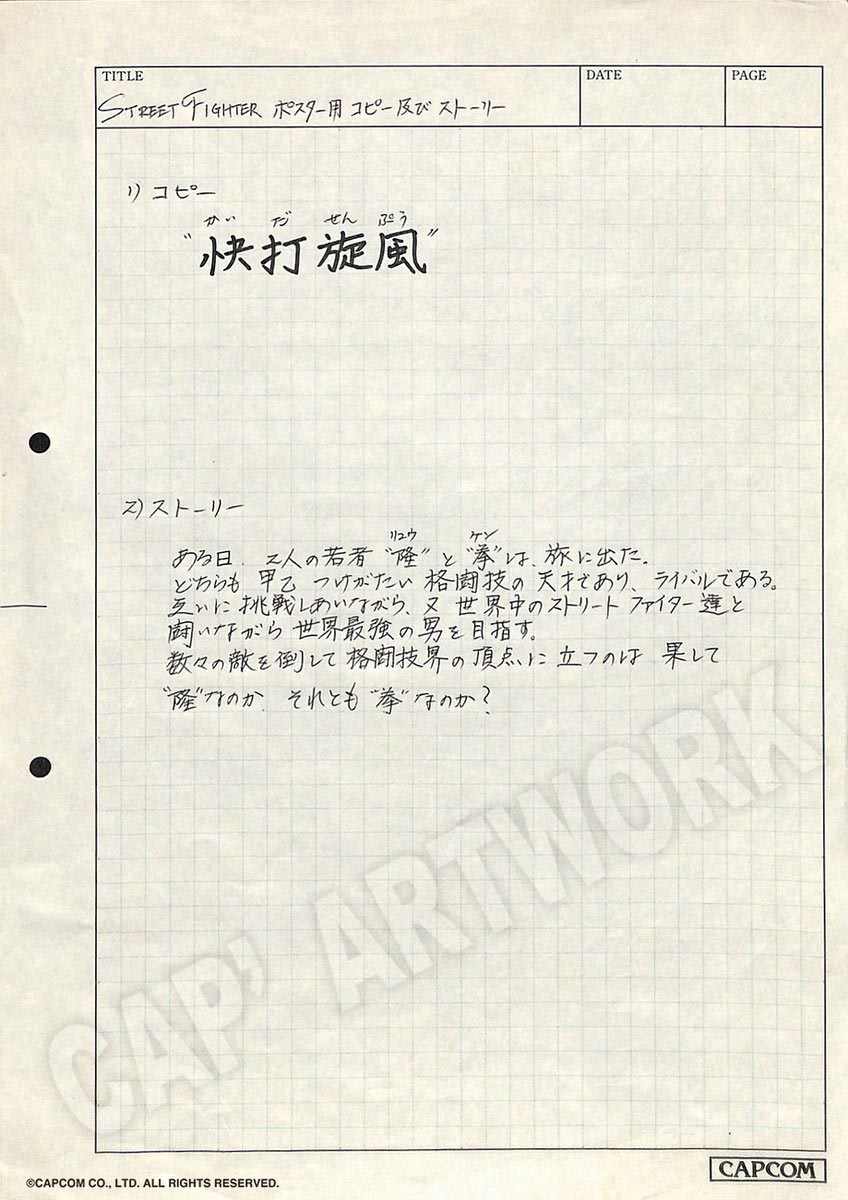 TITLE
DATE
PAGE
STREET FIGHTER ポスター用 コピー及び ストーリー
1) コピー
かい だ せん ぷう
"快打旋風"
2) ストーリー
リュウ ケン
ある日、2人の若者 "隆" と "拳" は、旅に出た。
どちらも 甲乙 つけがたい 格闘技の 天才であり、ライバルである。
互いに 挑戦しあいながら、又 世界中のストリート ファイター達と
闘いながら 世界最強の男を目指す。
数々の敵を倒して格闘技界の頂点に 立つのは 果して
"隆"なのか、それとも "拳"なのか?
CAP' ARTWORK
©CAPCOM CO., LTD. ALL RIGHTS RESERVED.
CAPCOM